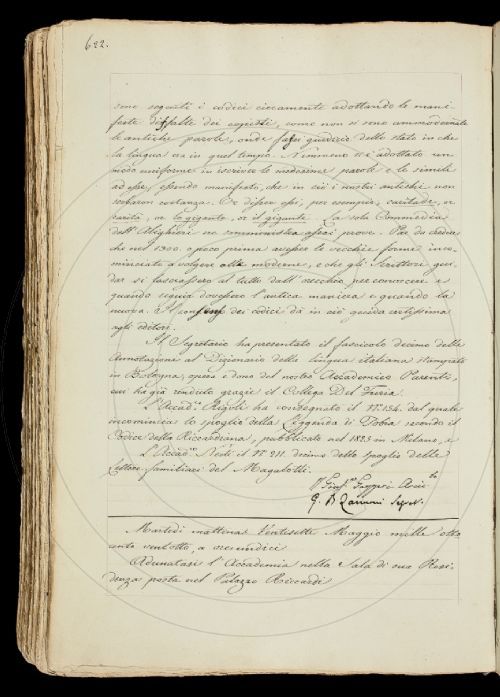 622.
sono seguiti i codici ciecamente adottando le mani-
feste diffalte dei copisti, come non si sono ammodernate
le antiche parole, onde farsi giudizio dello stato in che
la lingua era in quel tempo. Nemmeno si è adottato un
modo uniforme in iscrivere le medesime parole e le simili
ad esse, essendo manifesto, che in ciò i nostri antichi non
serbaron costanza. Or dissero essi, per esempio, caritade, or
carità, or lo gigante, or il gigante. La sola Commedia
dell'Alighieri ne somministra assai prove. Par da credere
che nel 1300. o poco prima avesser le vecchie forme inco-
minciato a volgere alle moderne, e che gli Scrittori gui-
dar si lasciassero al tutto dall'orecchio per conoscere
quando seguir dovessero l'antica maniera e quando la
nuova. Il dei codici dà in ciò guida certissima
agli editori.
Il Segretario ha presentato il fascicolo decimo delle
Annotazioni al Dizionario della lingua italiana stampato
in Bologna, opera e dono del nostro Accademico Parenti,
cui ha già rendute grazie il Collega Del Furia.
L'Accad.º Rigoli ha consegnato il Nº. 134. dal quale
incomincia lo spoglio della Leggenda di Tobia secondo il
Codice della Riccardiana, pubblicato nel 1825 in Milano, e
L'Accad.º Nesti il Nº. 211. decimo dello spoglio delle
Lettere familiari del Magalotti.
G. B. Zannoni Segret.
Martedì mattina Ventisette Maggio mille otto
cento ventotto, a ore undici
Adunatasi l'Accademia nella Sala di sua Resi-
denza posta nel Palazzo Riccardi